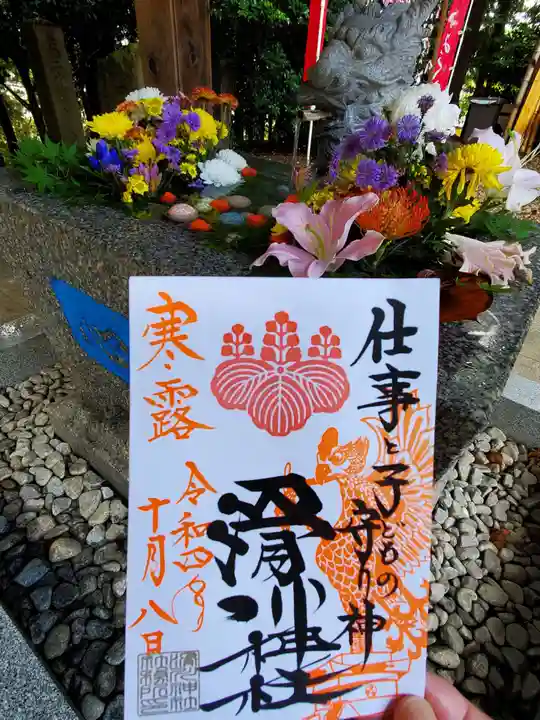 仕事と子どもの
守り神
滑川神社
寒露
令和四年
十月八日